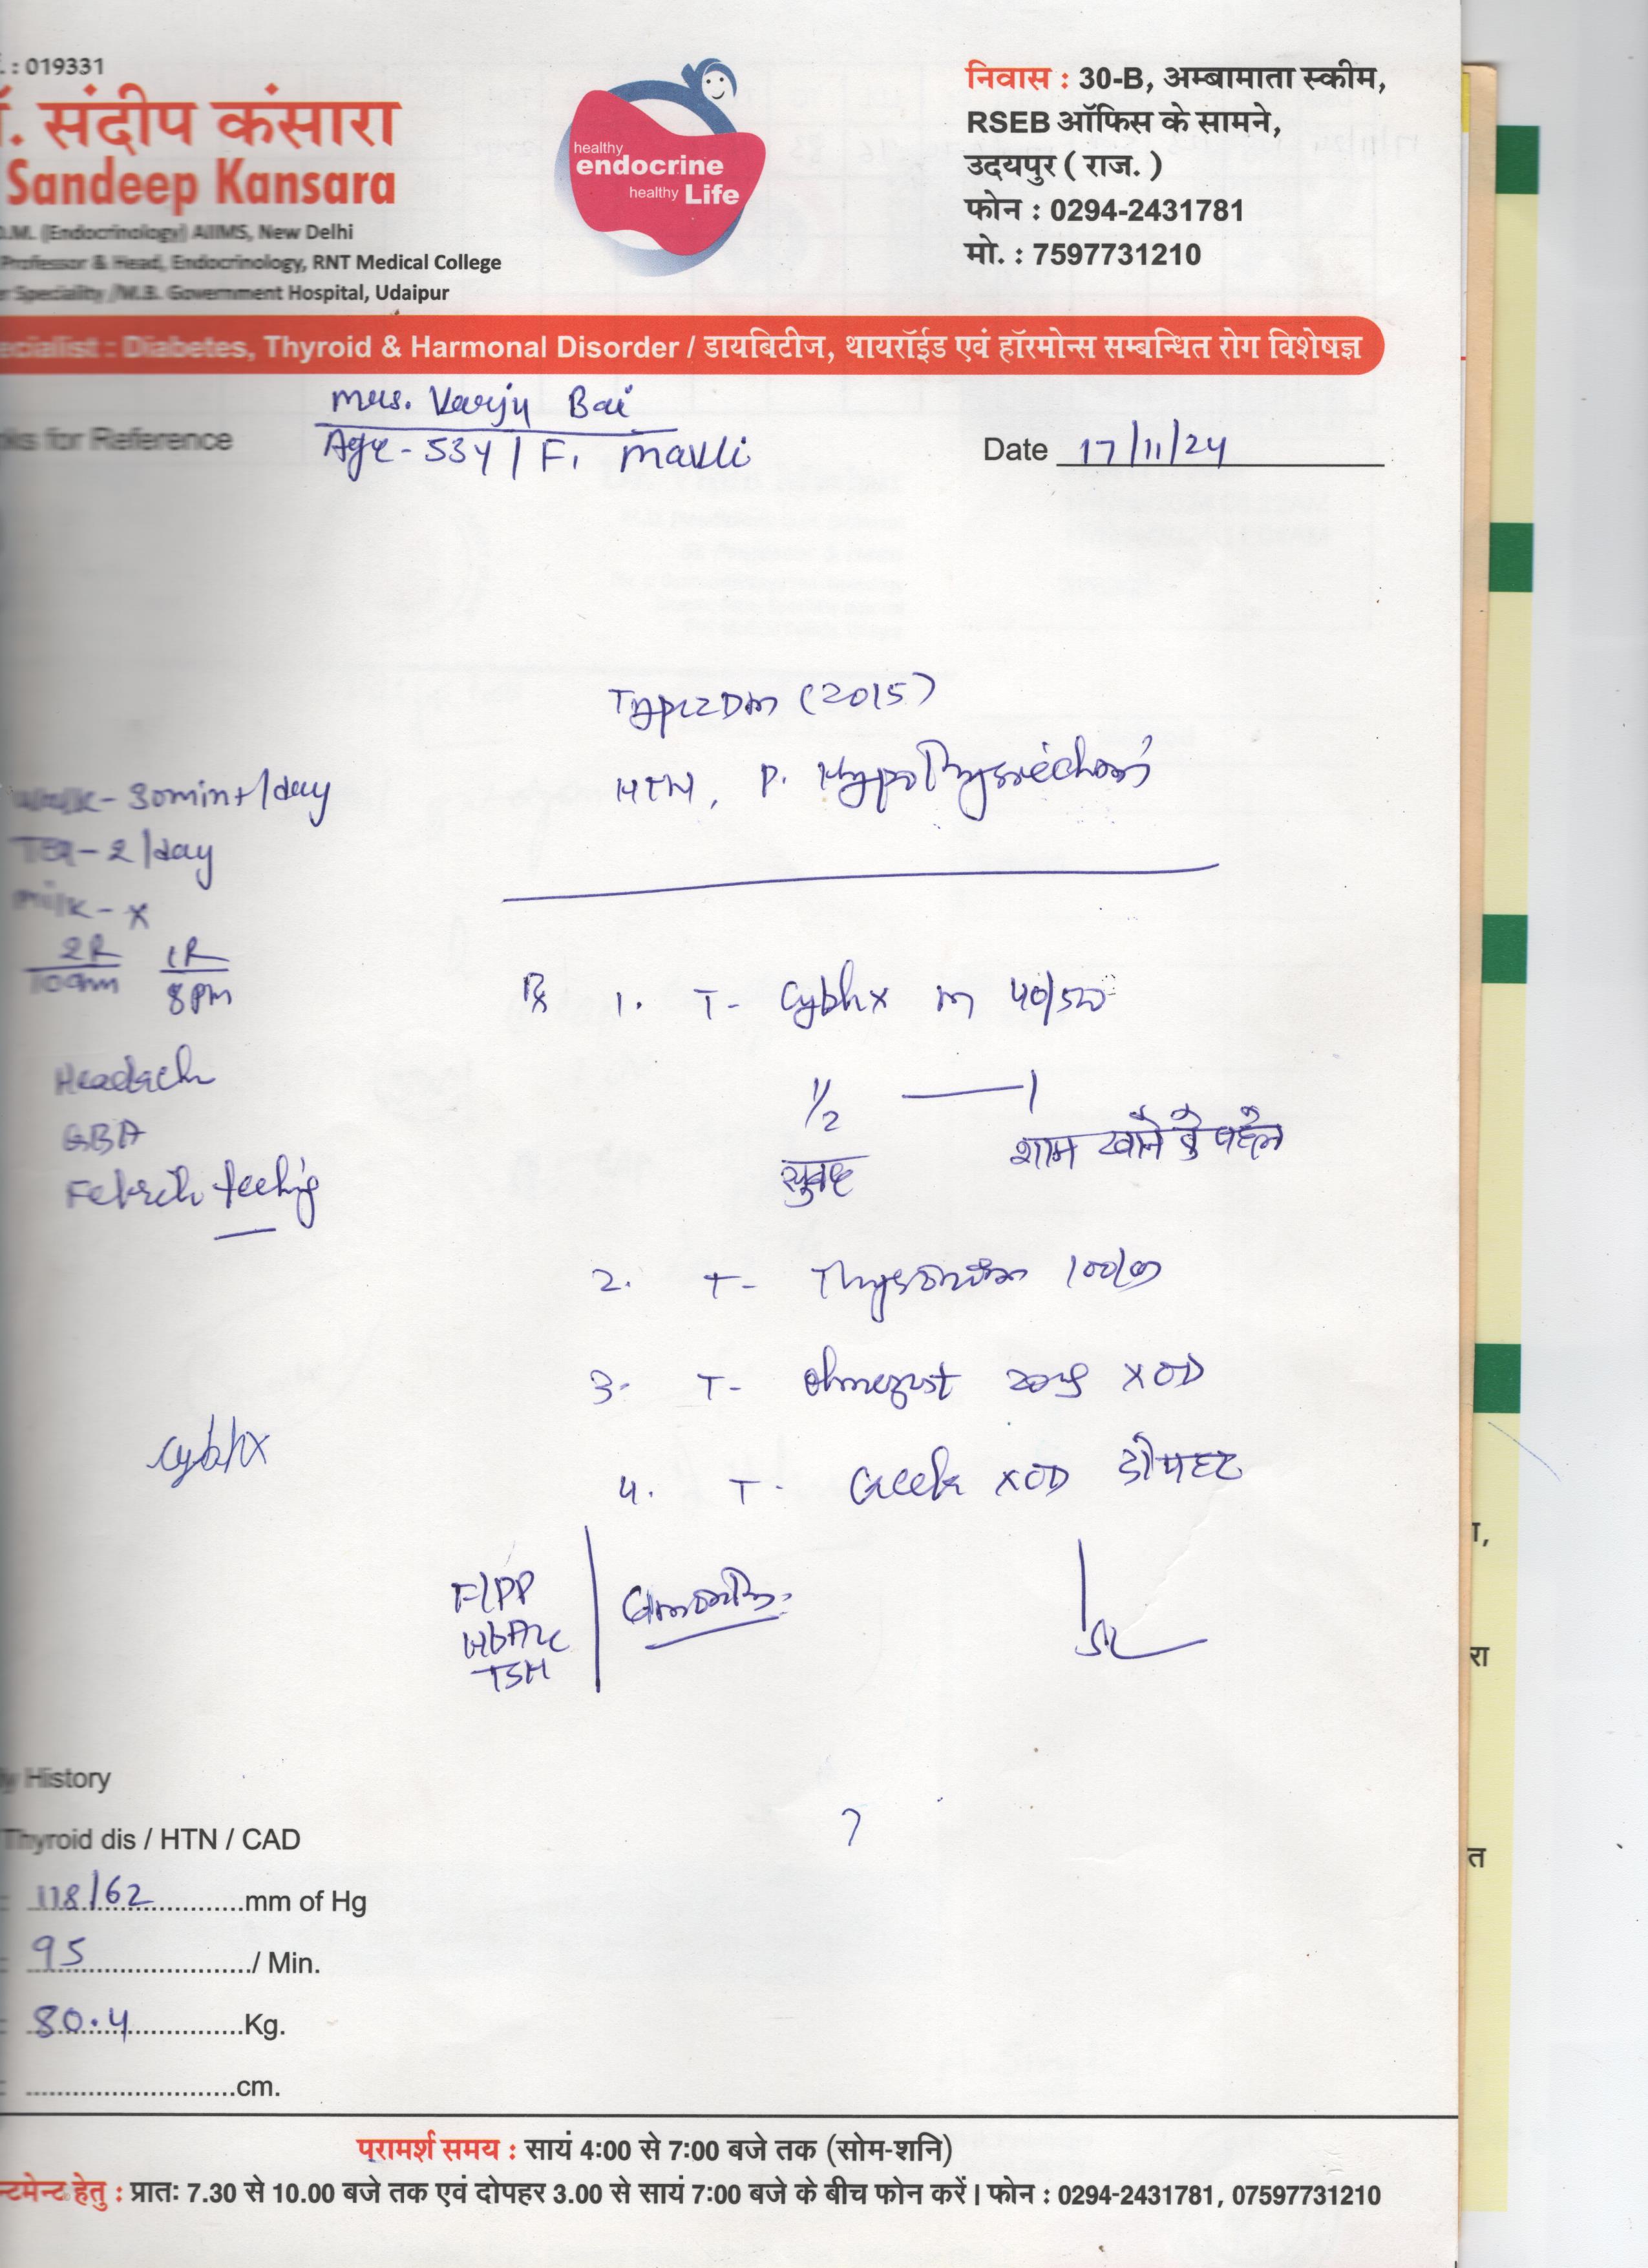 : 019331
. संदीप कंसारा
Sandeep Kansara
D.M. (Endocrinology) AIIMS, New Delhi
Professor & Head, Endocrinology, RNT Medical College
Speciality /M.B. Government Hospital, Udaipur
healthy
endocrine
healthy Life
निवास : 30-B, अम्बामाता स्कीम,
RSEB ऑफिस के सामने,
उदयपुर ( राज. )
फोन : 0294-2431781
मो. : 7597731210
ecialist : Diabetes, Thyroid & Harmonal Disorder / डायबिटीज, थायरॉईड एवं हॉरमोन्स सम्बन्धित रोग विशेषज्ञ
Mrs. Varju Bai
for Reference
Age - 53Y / F, Mavli
Date 17/11/24
Type 2 DM (2015)
HTN, P. Hypothyroidism
Walk - 30min+/day
Tea - 2/day
milk - x
2R 1R
10am 8pm
Headach
GBA
Febrile feeling
Rx 1. T- Cyblex M 40/500
1/2 —— 1
सुबह शाम खाने के पहले
2. T- Thyronorm 100
3. T- Olmezest 20mg x OD
Cyblex
4. T- x OD दोपहर
F/PP
HbA1c
TSH
History
Thyroid dis / HTN / CAD
118/62 mm of Hg
95 / Min.
80.4 Kg.
cm.
परामर्श समय : सायं 4:00 से 7:00 बजे तक (सोम-शनि)
न्टमेन्ट हेतु : प्रातः 7.30 से 10.00 बजे तक एवं दोपहर 3.00 से सायं 7:00 बजे के बीच फोन करें। फोन : 0294-2431781, 07597731210